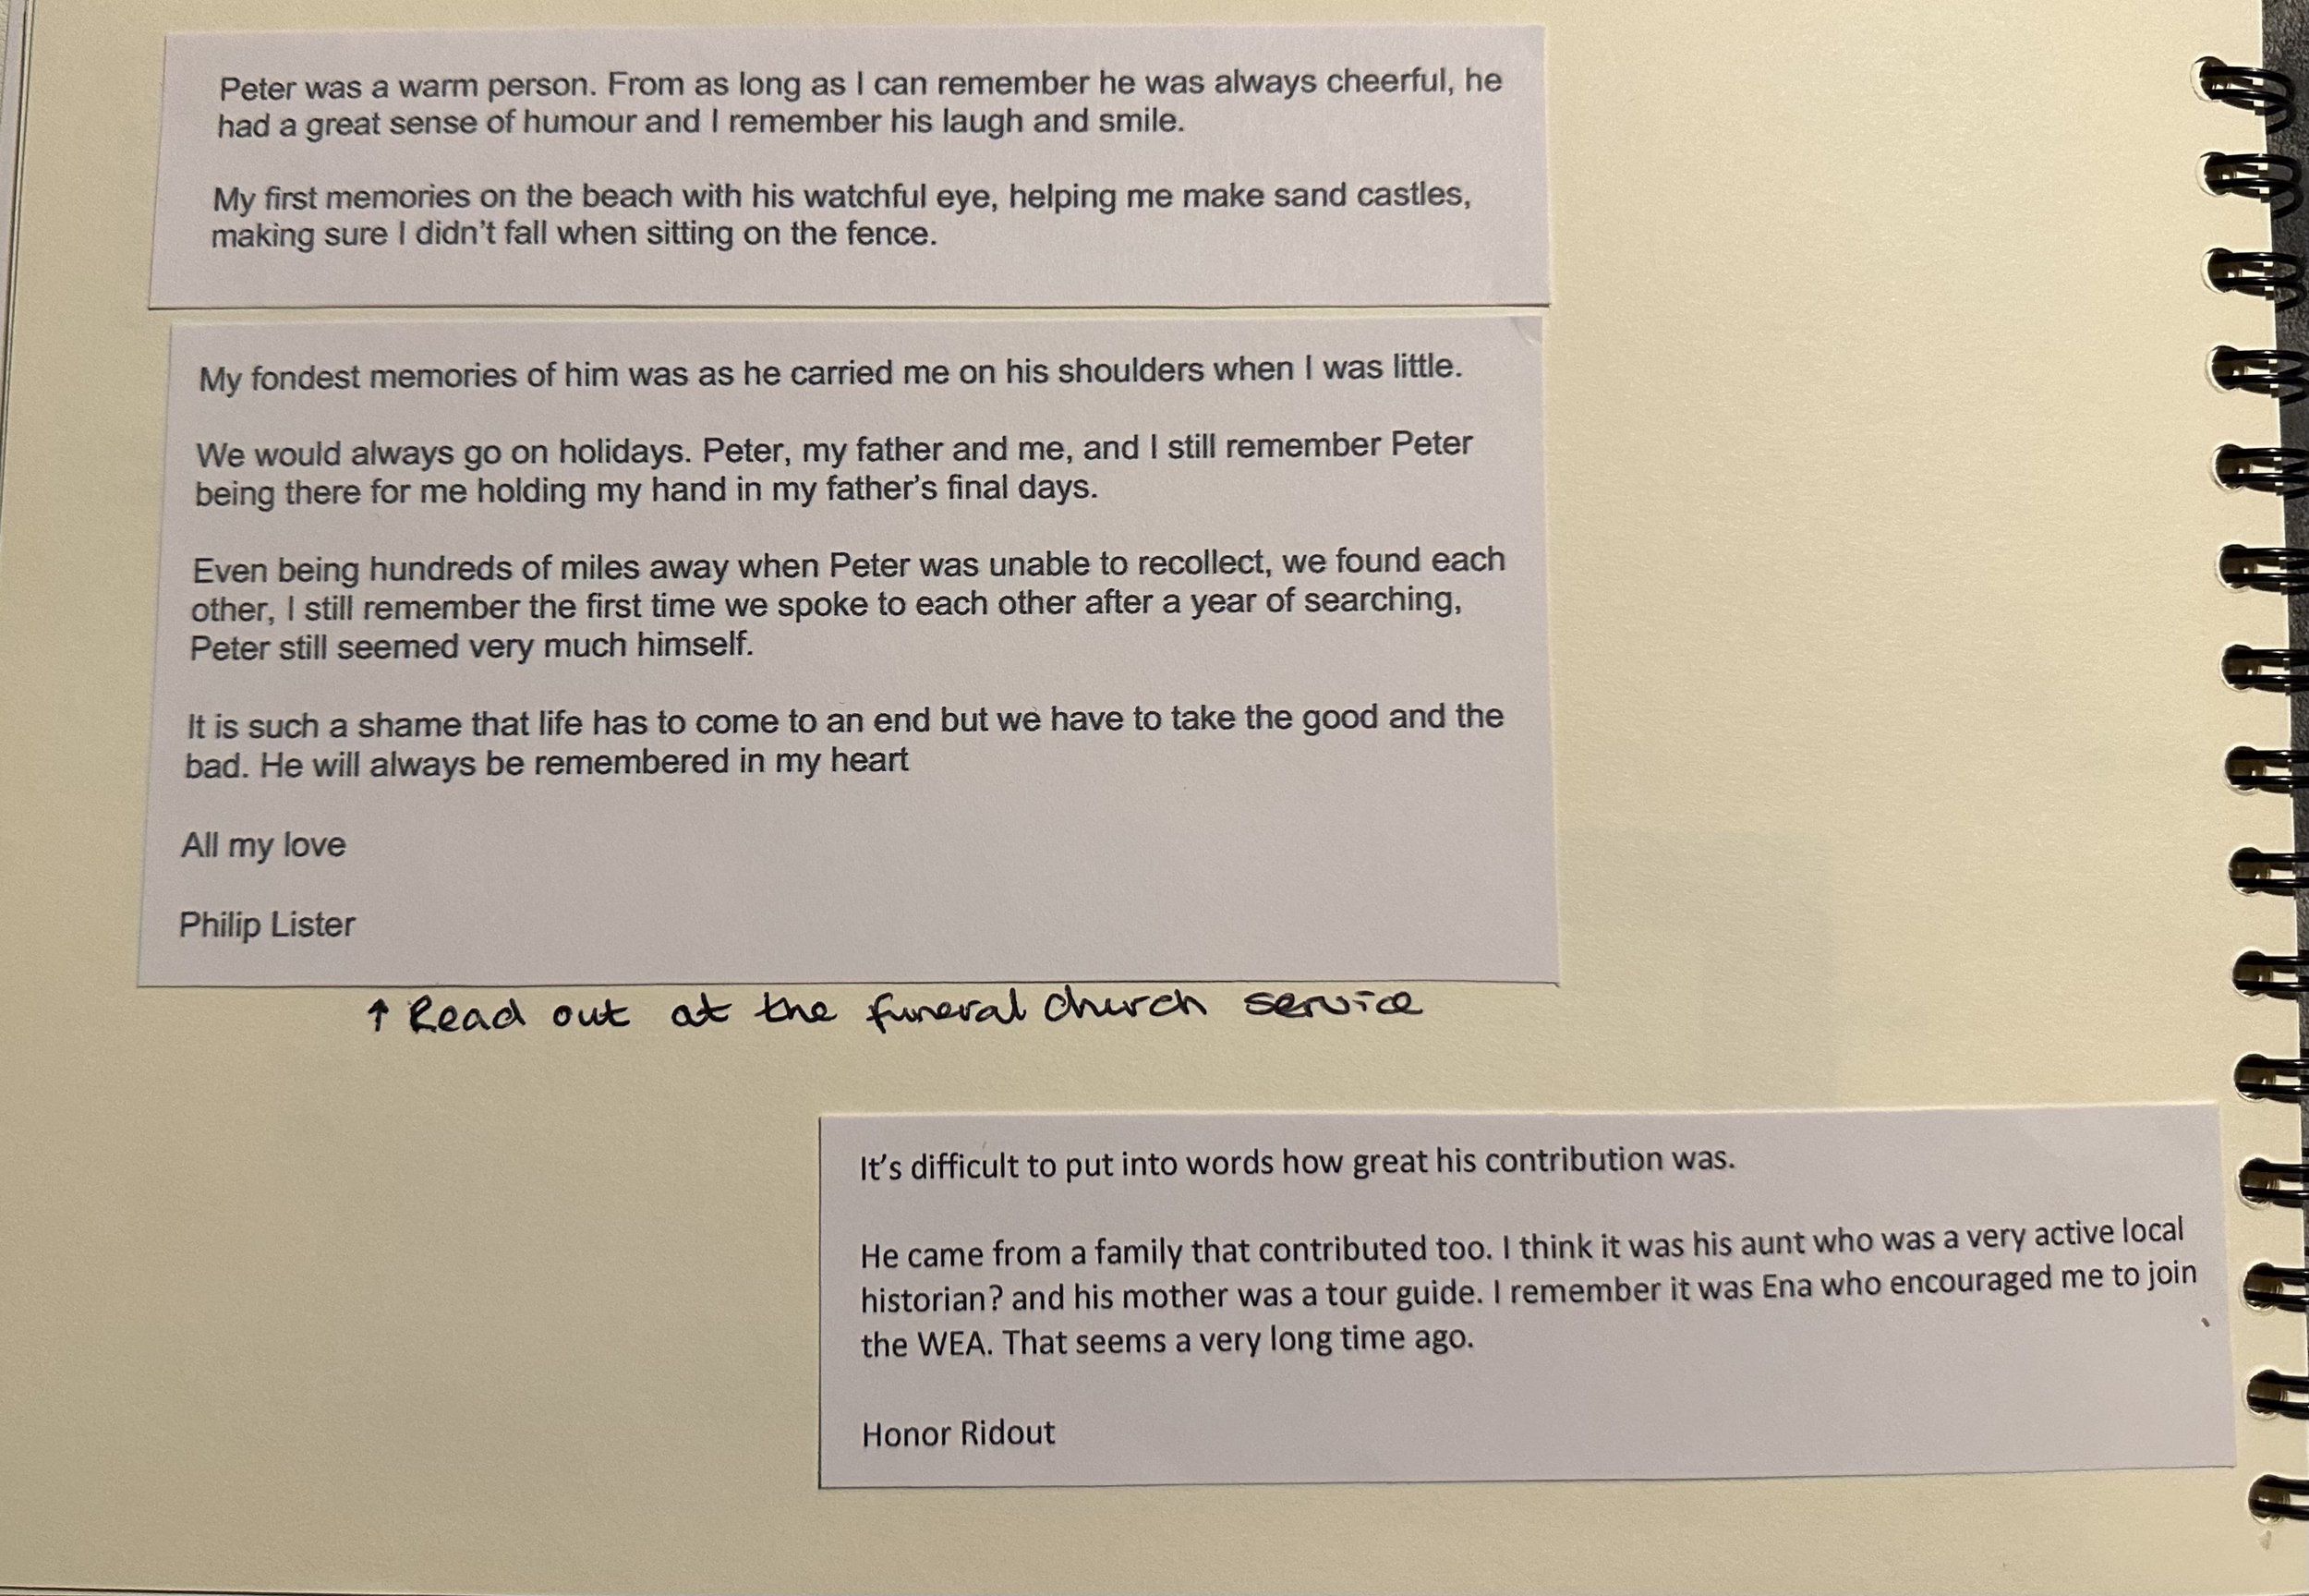 Peter was a warm person. From as long as I can remember he was always cheerful, he
had a great sense of humour and I remember his laugh and smile.
My first memories on the beach with his watchful eye, helping me make sand castles,
making sure I didn't fall when sitting on the fence.
My fondest memories of him was as he carried me on his shoulders when I was little.
We would always go on holidays. Peter, my father and me, and I still remember Peter
being there for me holding my hand in my father's final days.
Even being hundreds of miles away when Peter was unable to recollect, we found each
other, I still remember the first time we spoke to each other after a year of searching,
Peter still seemed very much himself.
It is such a shame that life has to come to an end but we have to take the good and the
bad. He will always be remembered in my heart
All my love
Philip Lister
↑ Read out at the funeral church service
It's difficult to put into words how great his contribution was.
He came from a family that contributed too. I think it was his aunt who was a very active local
historian? and his mother was a tour guide. I remember it was Ena who encouraged me to join
the WEA. That seems a very long time ago.
Honor Ridout